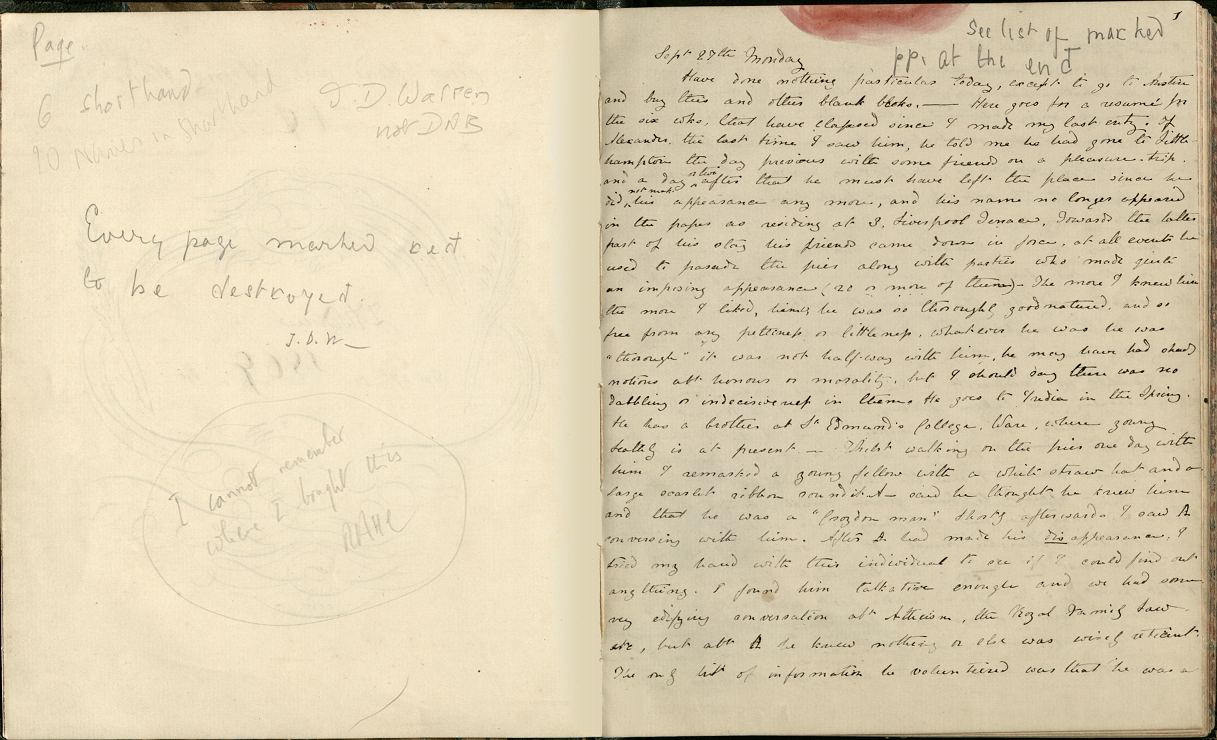 Page.
6 shorthand
90 names in shorthand
J. D. Warren
not DNB
Every page marked
to be destroyed.
J. D. W—
I cannot remember
where I bought this
1
See list of marked
pp. at the end
Sept 27th Monday
Have done nothing particular today, except to go to
and buy this and other blank books. — Here goes for a resumé for
the six wks. that have elapsed since I made my last entry. Of
Alexander, the last time I saw him, he told me he had gone to Little-
hampton the day previous with some friend on a pleasure-trip.
and a day or two after that he must have left the place since he
did not make his appearance any more, and his name no longer appeared
in the papers as residing at 3, Liverpool Terrace. Towards the latter
part of his stay his friends came down in force, at all events he
used to parade the pier along with parties who made quite
an imposing appearance (20 or more of them) – The more I knew him
the more I liked him; he was so thoroughly goodnatured, and so
free from any pettiness or littleness, whatever he was he was
"thorough" it was not half-way with him, he may have had
notions abt honour or morality, but I should say there was no
dabbling or indecisiveness in them. He goes to India in the Spring.
He has a brother at St Edmund's College, Ware, where young
is at present. — Whilst walking on the pier one day with
him I remarked a young fellow with a white straw hat and a
large scarlet ribbon round it A– said he thought he knew him
and that he was a "Croydon man" Shortly afterwards I saw A
conversing with him. After A had made his disappearance, I
tried my hand with this individual to see if I could find out
anything. I found him talkative enough and we had some
very edifying conversation abt Atheism, the Royal Family Law
etc, but abt A he knew nothing or else was wisely reticent.
The only bit of information he volunteered was that he was a